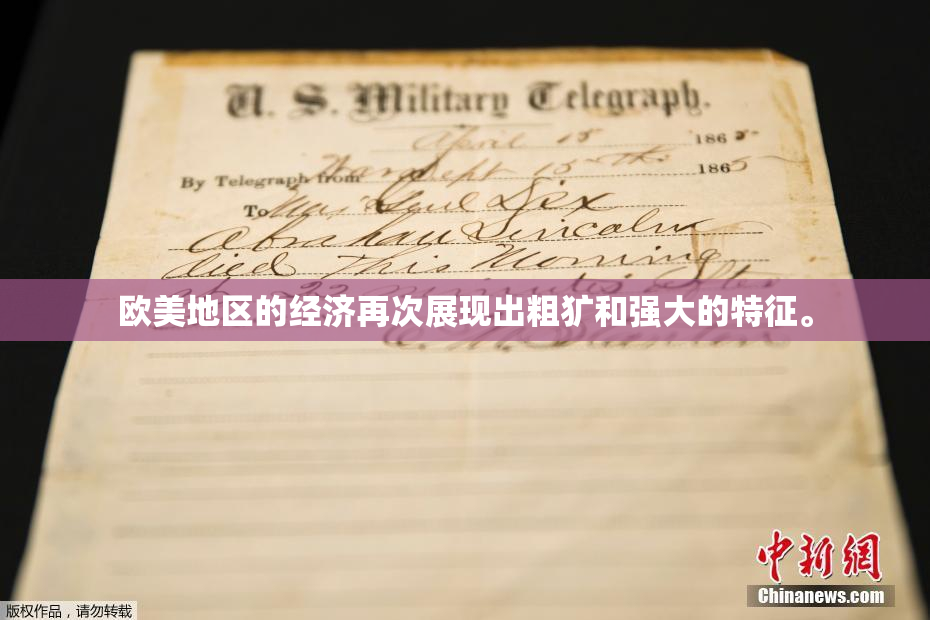 U. S. Military Telegraph.
April 15 1865
By Telegraph from War Dept 15th 1865
To Maj Genl Dix
Abraham Lincoln
died This Morning
at 22 minutes after
欧美地区的经济再次展现出粗犷和强大的特征。
E. M. Stanton
中新网
Chinanews.com
版权作品，请勿转载